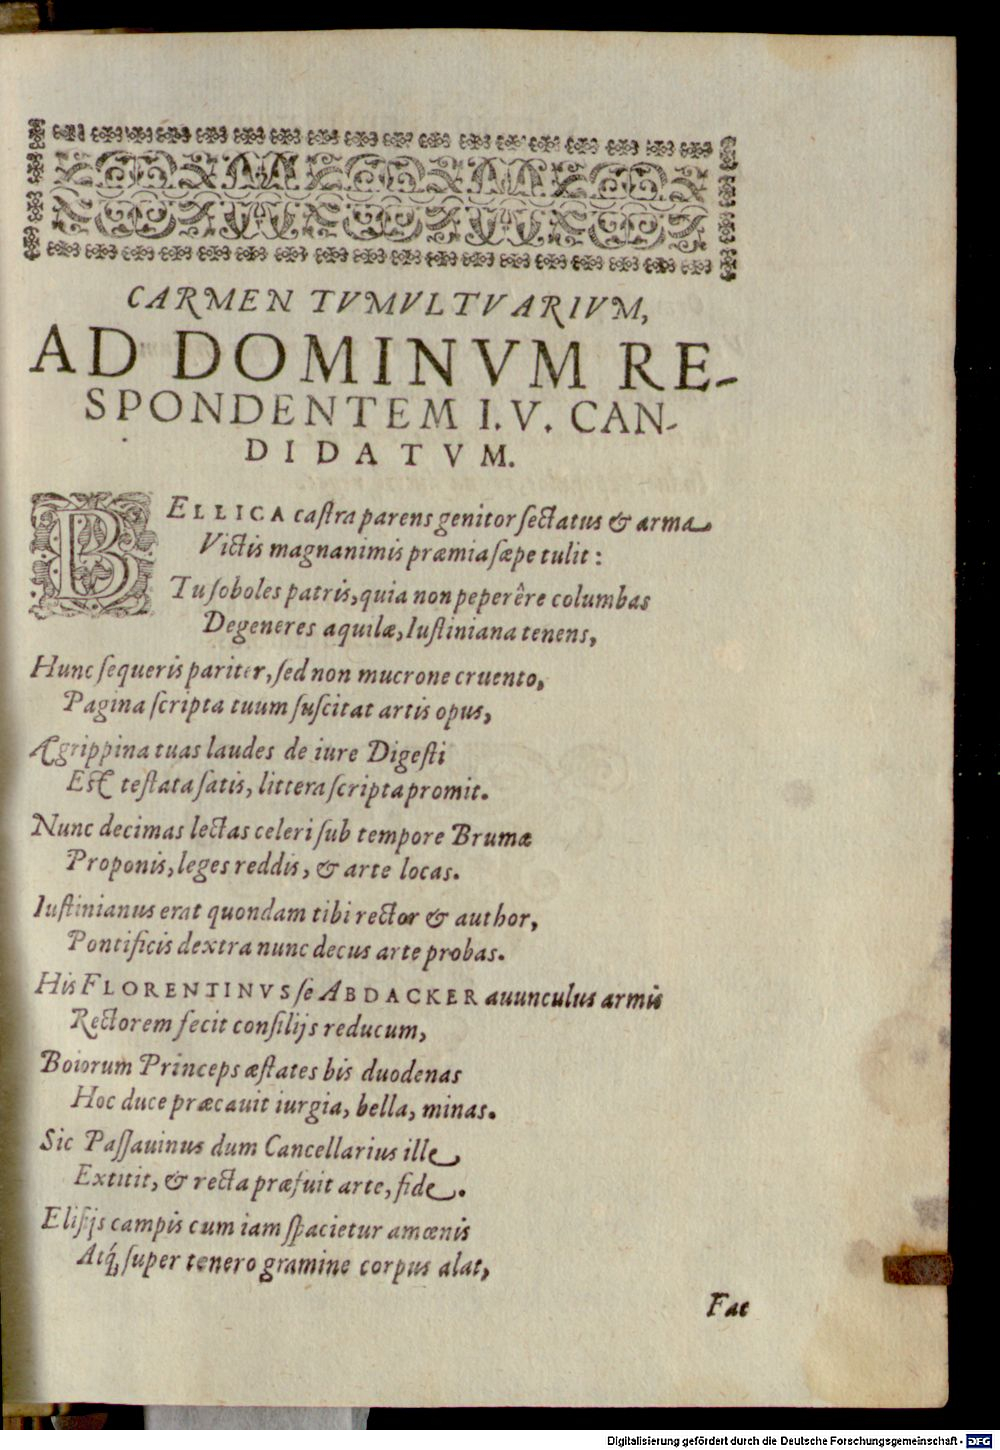 CARMEN TVMVLTVARIVM,
AD DOMINVM RE-
SPONDENTEM I.V. CAN-
DIDATVM.
BELLICA caſtra parens genitor ſectatus & arma
Victis magnanimis præmia ſæpe tulit:
Tu ſoboles patris, quia non peperêre columbas
Degeneres aquilæ, Iuſtiniana tenens,
Hunc ſequeris pariter, ſed non mucrone cruento,
Pagina ſcripta tuum ſuſcitat artis opus,
Agrippina tuas laudes de iure Digeſti
Eſt teſtata ſatis, littera ſcripta promit.
Nunc decimas lectas celeri ſub tempore Brumæ
Proponis, leges reddis, & arte locas.
Iuſtinianus erat quondam tibi rector & author,
Pontificis dextra nunc decus arte probas.
His FLORENTINVS ſe ABDACKER auunculus armis
Rectorem fecit conſilijs reducum,
Boiorum Princeps æſtates bis duodenas
Hoc duce præcauit iurgia, bella, minas.
Sic Paſſauinus dum Cancellarius ille
Extitit, & recta præfuit arte, fide.
Eliſijs campis cum iam ſpacietur amœnis
Atq́; ſuper tenero gramine corpus alat,
Fac
Digitalisierung gefördert durch die Deutsche Forschungsgemeinschaft - DFG